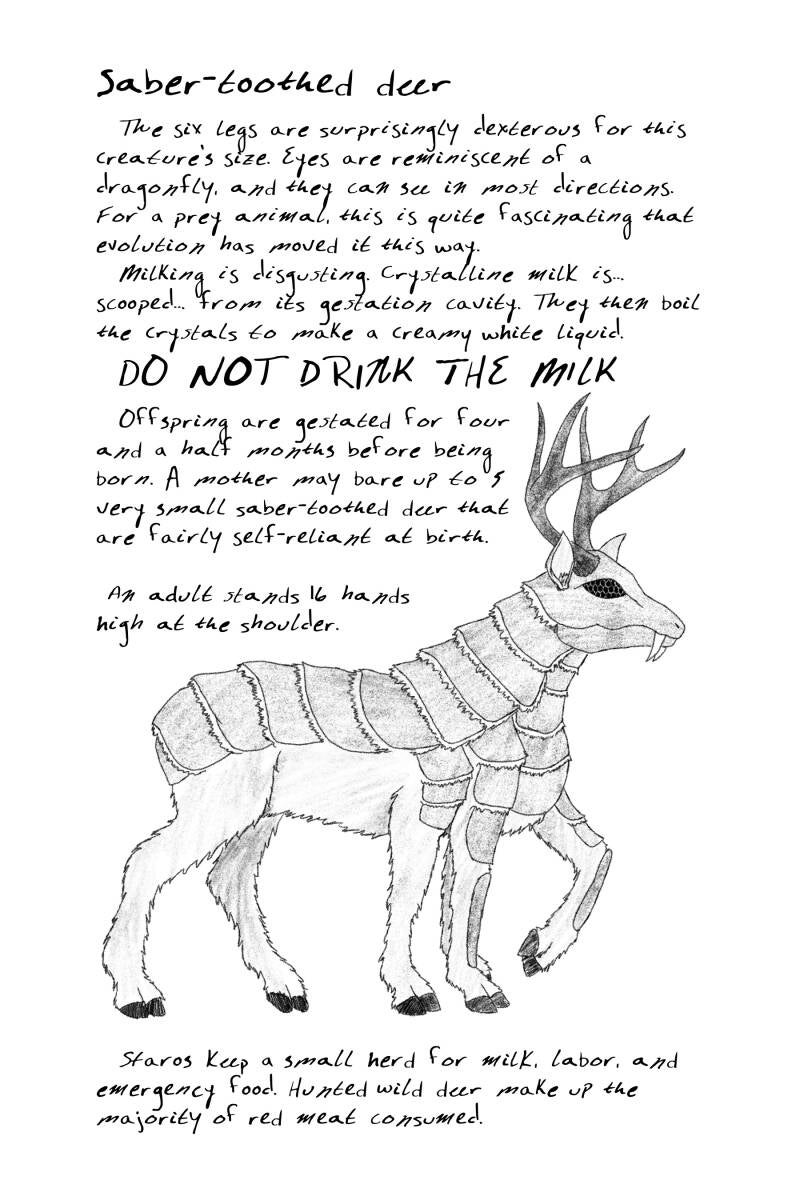 Saber-toothed deer
The six legs are surprisingly dexterous for this
creature's size. Eyes are reminiscent of a
dragonfly, and they can see in most directions.
For a prey animal, this is quite fascinating that
evolution has moved it this way.
Milking is disgusting. Crystalline milk is...
scooped... from its gestation cavity. They then boil
the crystals to make a creamy white liquid.
DO NOT DRINK THE MILK
Offspring are gestated for four
and a half months before being
born. A mother may bare up to 5
very small saber-toothed deer that
are fairly self-reliant at birth.
An adult stands 16 hands
high at the shoulder.
Staros keep a small herd for milk, labor, and
emergency food. Hunted wild deer make up the
majority of red meat consumed.